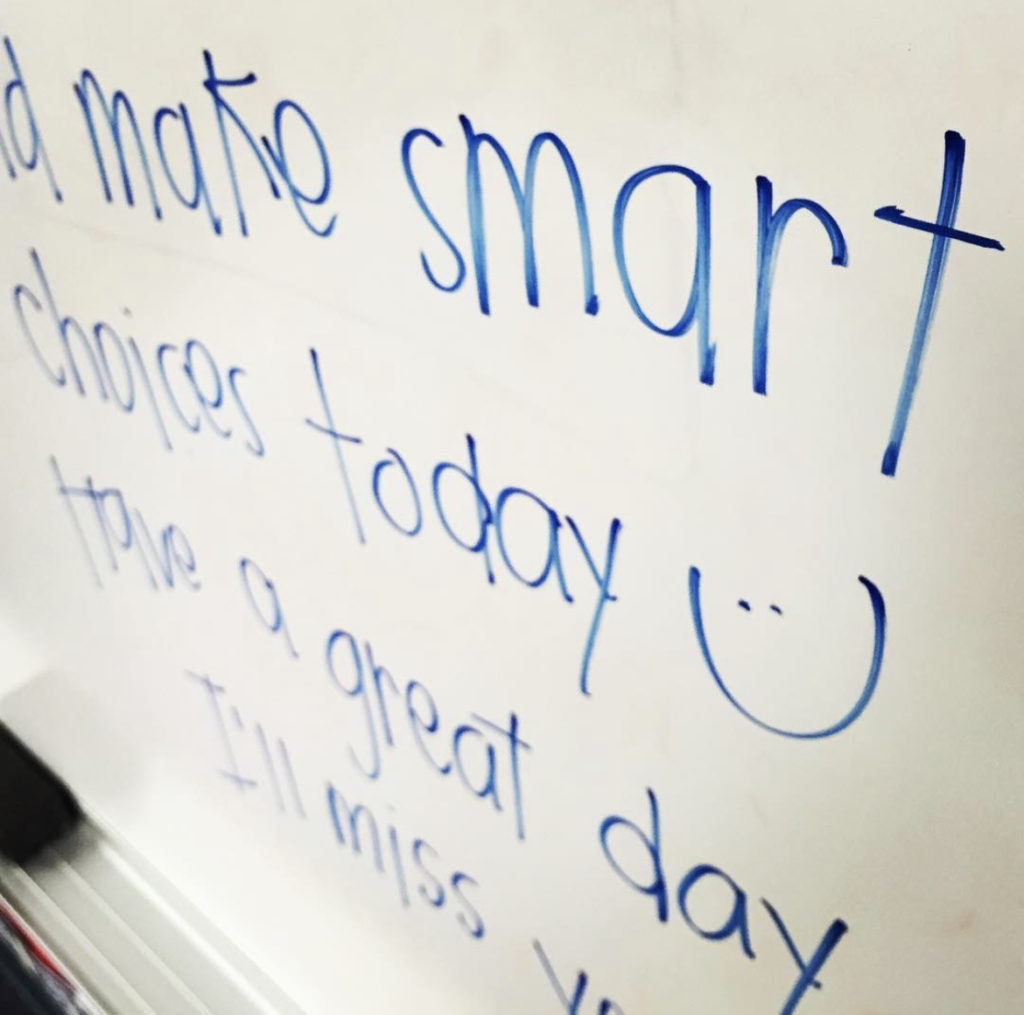 make smart
choices today
Have a great day
I'll miss